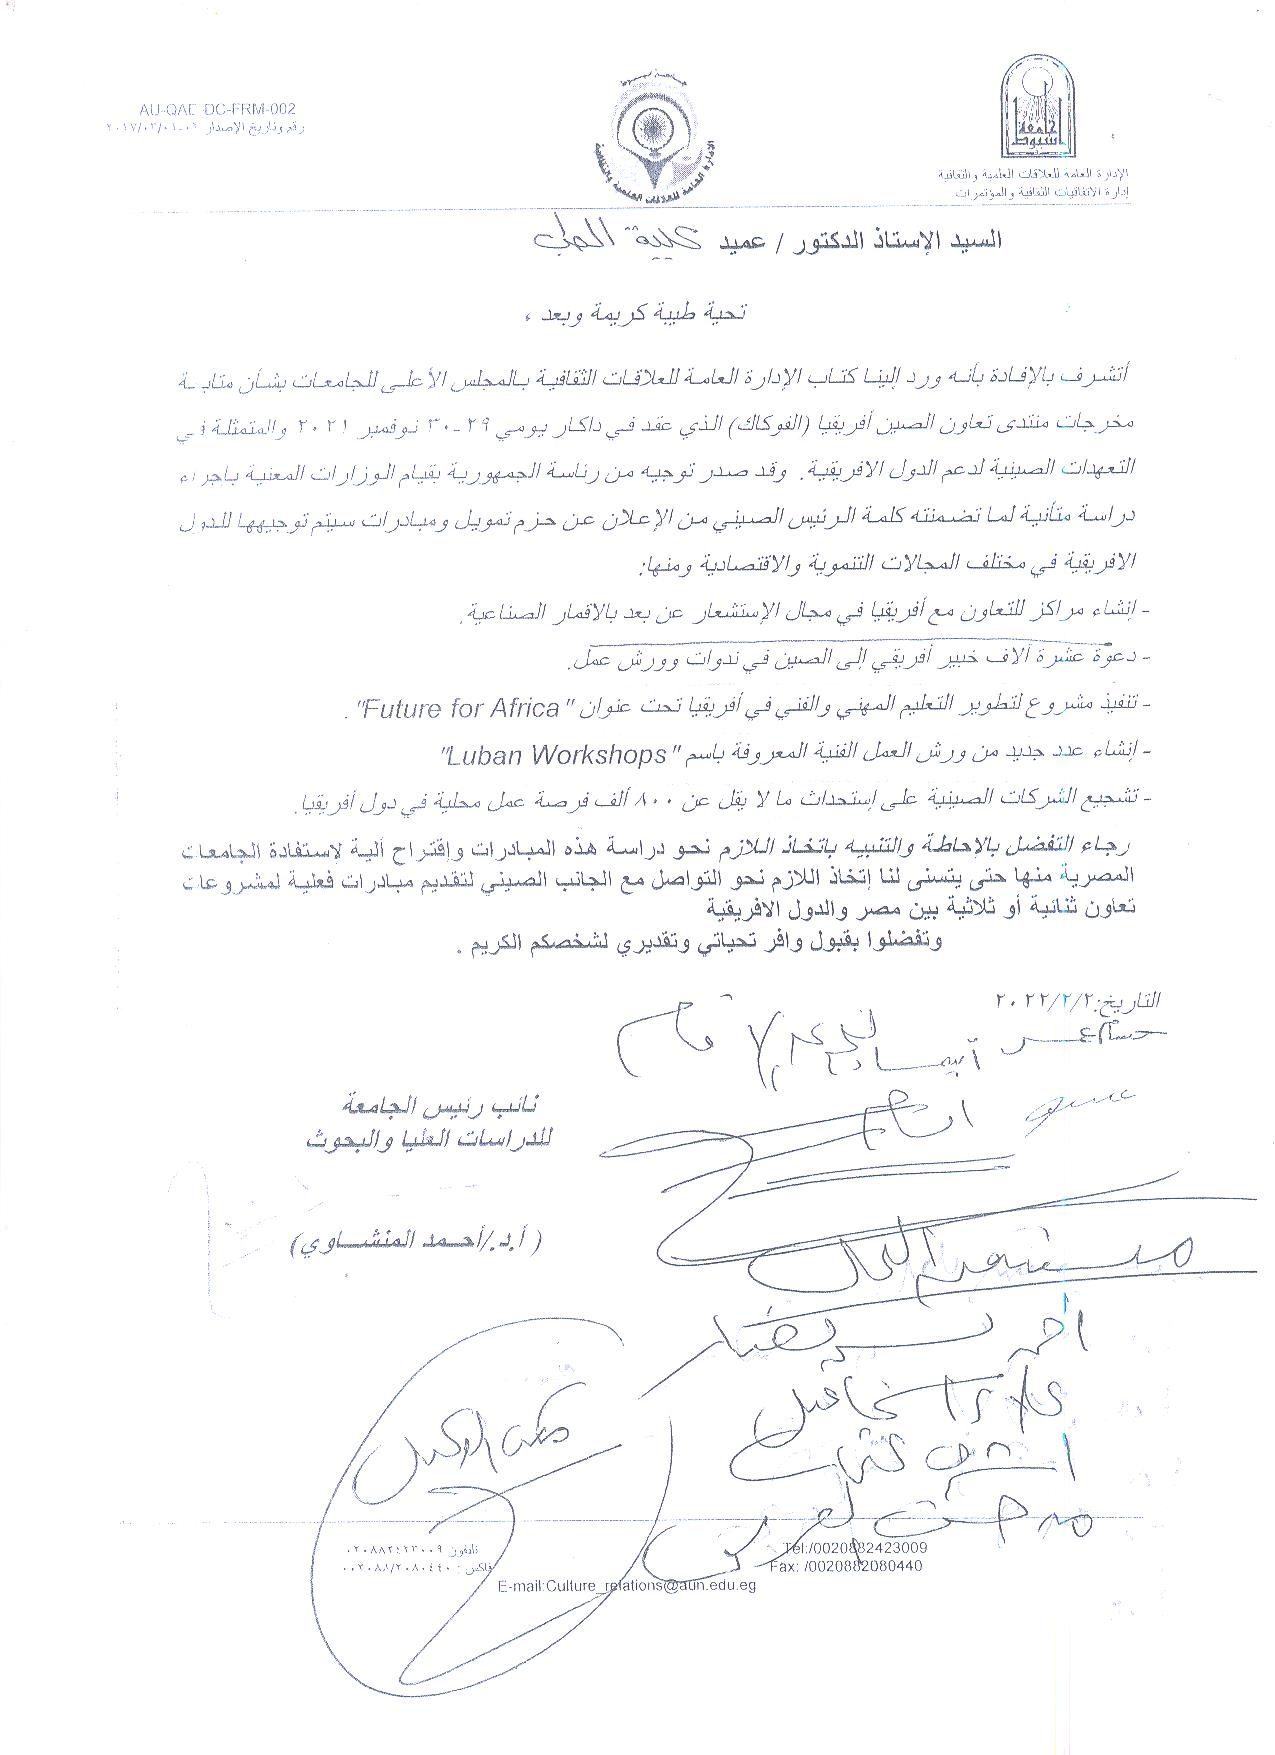 AU-QAE-DC-FRM-002
رقم وتاريخ الإصدار
جامعة أسيوط
الإدارة العامة للعلاقات العلمية والثقافية
جامعة أسيوط
الإدارة العامة للعلاقات العلمية والثقافية
إدارة الاتفاقيات الثقافية والمؤتمرات
السيد الإستاذ الدكتور / عميد كلية الطب
تحية طيبة كريمة وبعد ،
أتشرف بالإفادة بأنه ورد إلينا كتاب الإدارة العامة للعلاقات الثقافية بالمجلس الأعلى للجامعات بشأن متابعة
مخرجات منتدى تعاون الصين أفريقيا (الفوكاك) الذي عقد في داكار يومي ٢٩-٣٠ نوفمبر ٢٠٢١ والمتمثلة في
التعهدات الصينية لدعم الدول الافريقية. وقد صدر توجيه من رئاسة الجمهورية بقيام الوزارات المعنية باجراء
دراسة متأنية لما تضمنته كلمة الرئيس الصيني من الإعلان عن حزم تمويل ومبادرات سيتم توجيهها للدول
الافريقية في مختلف المجالات التنموية والاقتصادية ومنها:
- إنشاء مراكز للتعاون مع أفريقيا في مجال الإستشعار عن بعد بالاقمار الصناعية.
- دعوة عشرة ألاف خبير أفريقي إلى الصين في ندوات وورش عمل.
- تنفيذ مشروع لتطوير التعليم المهني والفني في أفريقيا تحت عنوان "Future for Africa".
- إنشاء عدد جديد من ورش العمل الفنية المعروفة باسم "Luban Workshops"
- تشجيع الشركات الصينية على إستحداث ما لا يقل عن ٨٠٠ ألف فرصة عمل محلية في دول أفريقيا.
رجاء التفضل بالاحاطة والتنبيه باتخاذ اللازم نحو دراسة هذه المبادرات وإقتراح آلية لاستفادة الجامعات
المصرية منها حتى يتسنى لنا إتخاذ اللازم نحو التواصل مع الجانب الصيني لتقديم مبادرات فعلية لمشروعات
تعاون ثنائية أو ثلاثية بين مصر والدول الافريقية
وتفضلوا بقبول وافر تحياتي وتقديري لشخصكم الكريم .
التاريخ:٢٠٢٢/٢/٢
نائب رئيس الجامعة
للدراسات العليا والبحوث
(أ.د./أحمد المنشاوي)
تليفون ٠٢٠٨٨٢٤٢٣٠٠٩
فاكس : ٠٠٢٠٨٨/٢٠٨٠٤٤٠
Tel:/0020882423009
Fax: /0020882080440
E-mail:Culture_relations@aun.edu.eg